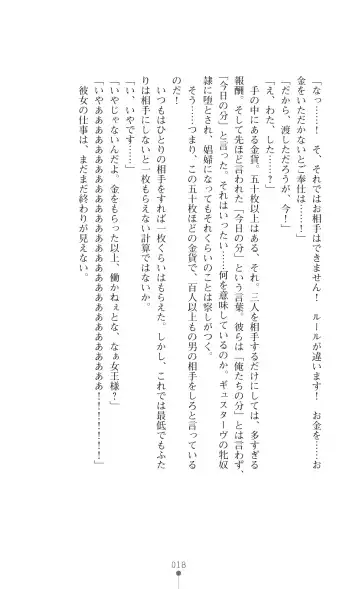 「なっ……！　そ、それではお相手はできません！　ルールが違います！　お金を……お
金をいただかないとご奉仕は……！」
「だから、渡しただろうが、今！」
「え、わた、した……？」
　手の中にある金貨。五十枚以上はある、それ。三人を相手するだけにしては、多すぎる
報酬。そして先ほど言われた「今日の分」という言葉。彼らは「俺たちの分」とは言わず、
「今日の分」と言った。それはいったい……何を意味しているのか。ギュスターヴの牝奴
隷に堕とされ、娼婦になってもそれくらいのことは察しがつく。
　そう……つまり、この五十枚ほどの金貨で、百人以上もの男の相手をしろと言っている
のだ！
　いつもはひとりの相手をすれば一枚くらいはもらえた。しかし、これでは最低でもふた
りは相手にしないと一枚もらえない計算ではないか。
「い、いやです……！」
「いやじゃないんだよ。金をもらった以上、働かねぇとな、なぁ女王様？」
「いやああああああああああああああああああああああああああああ！！！！！！」
　彼女の仕事は、まだまだ終わりが見えない。
018